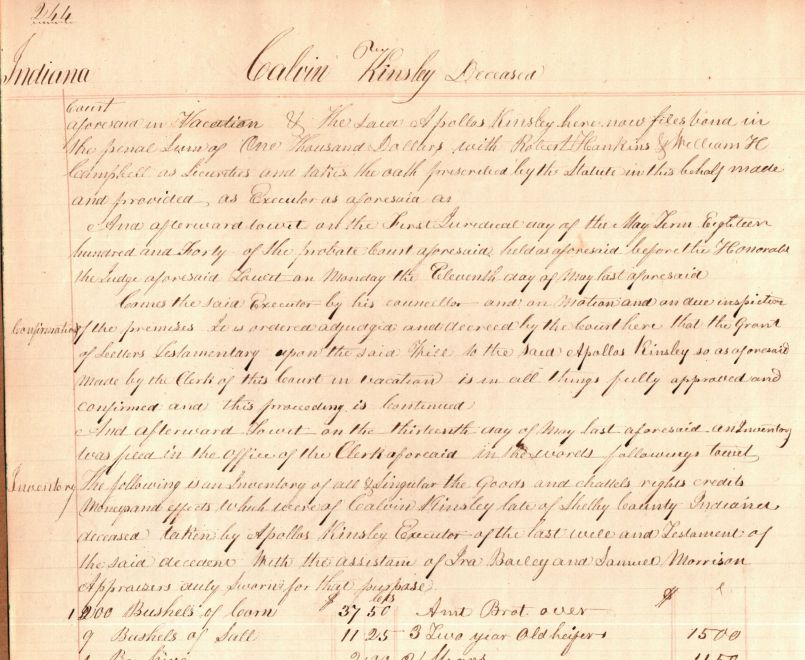 244
Indiana
Calvin Kinsley Deceased
Court
aforesaid in Vacation & The said Apollos Kinsley here now files bond in
the penal Sum of One Thousand Dollers with Robert Hankins & William H
Campbell as Securities and takes the oath prescribed by the Statute in this behalf made
and provided as Executor as aforesaid as
And afterward towit on the First Juredical day of the May Term Eighteen
hundred and Forty of the probate Court aforesaid held as aforesaid before the Honorable
the Judge aforesaid Towit on Monday the Eleventh day of May last aforesaid
Comes the said Executor by his councellor and on Motion and on due inspection
Confirmation
of the premises It is ordered adjudged and decreed by the Court here that the Grant
of Letters Testamentary upon the said Will to the said Apollos Kinsley so as aforesaid
made by the Clerk of this Court in vacation is in all things fully approved and
confirmed and this proceeding is Continued
And afterward Towit on the thirteenth day of May last aforesaid an Inventory
was filed in the office of the Clerk aforesaid in the words following towit
Inventory
The following is an Inventory of all & Singular the Goods and chattels rights credits
Moneys and effects which were of Calvin Kinsley late of Shelby County Indiana
deceased taken by Apollos Kinsley Executor of the last will and Testament of
the said decedent With the assistan of Ira Bailey and Samuel Morrison
Appraisers duly Sworn for that purpose
200 Bushels of Corn $ 37 50 Amt Brot over $
9 Bushels of Salt 11 25 3 Two year Old heifers 15 00